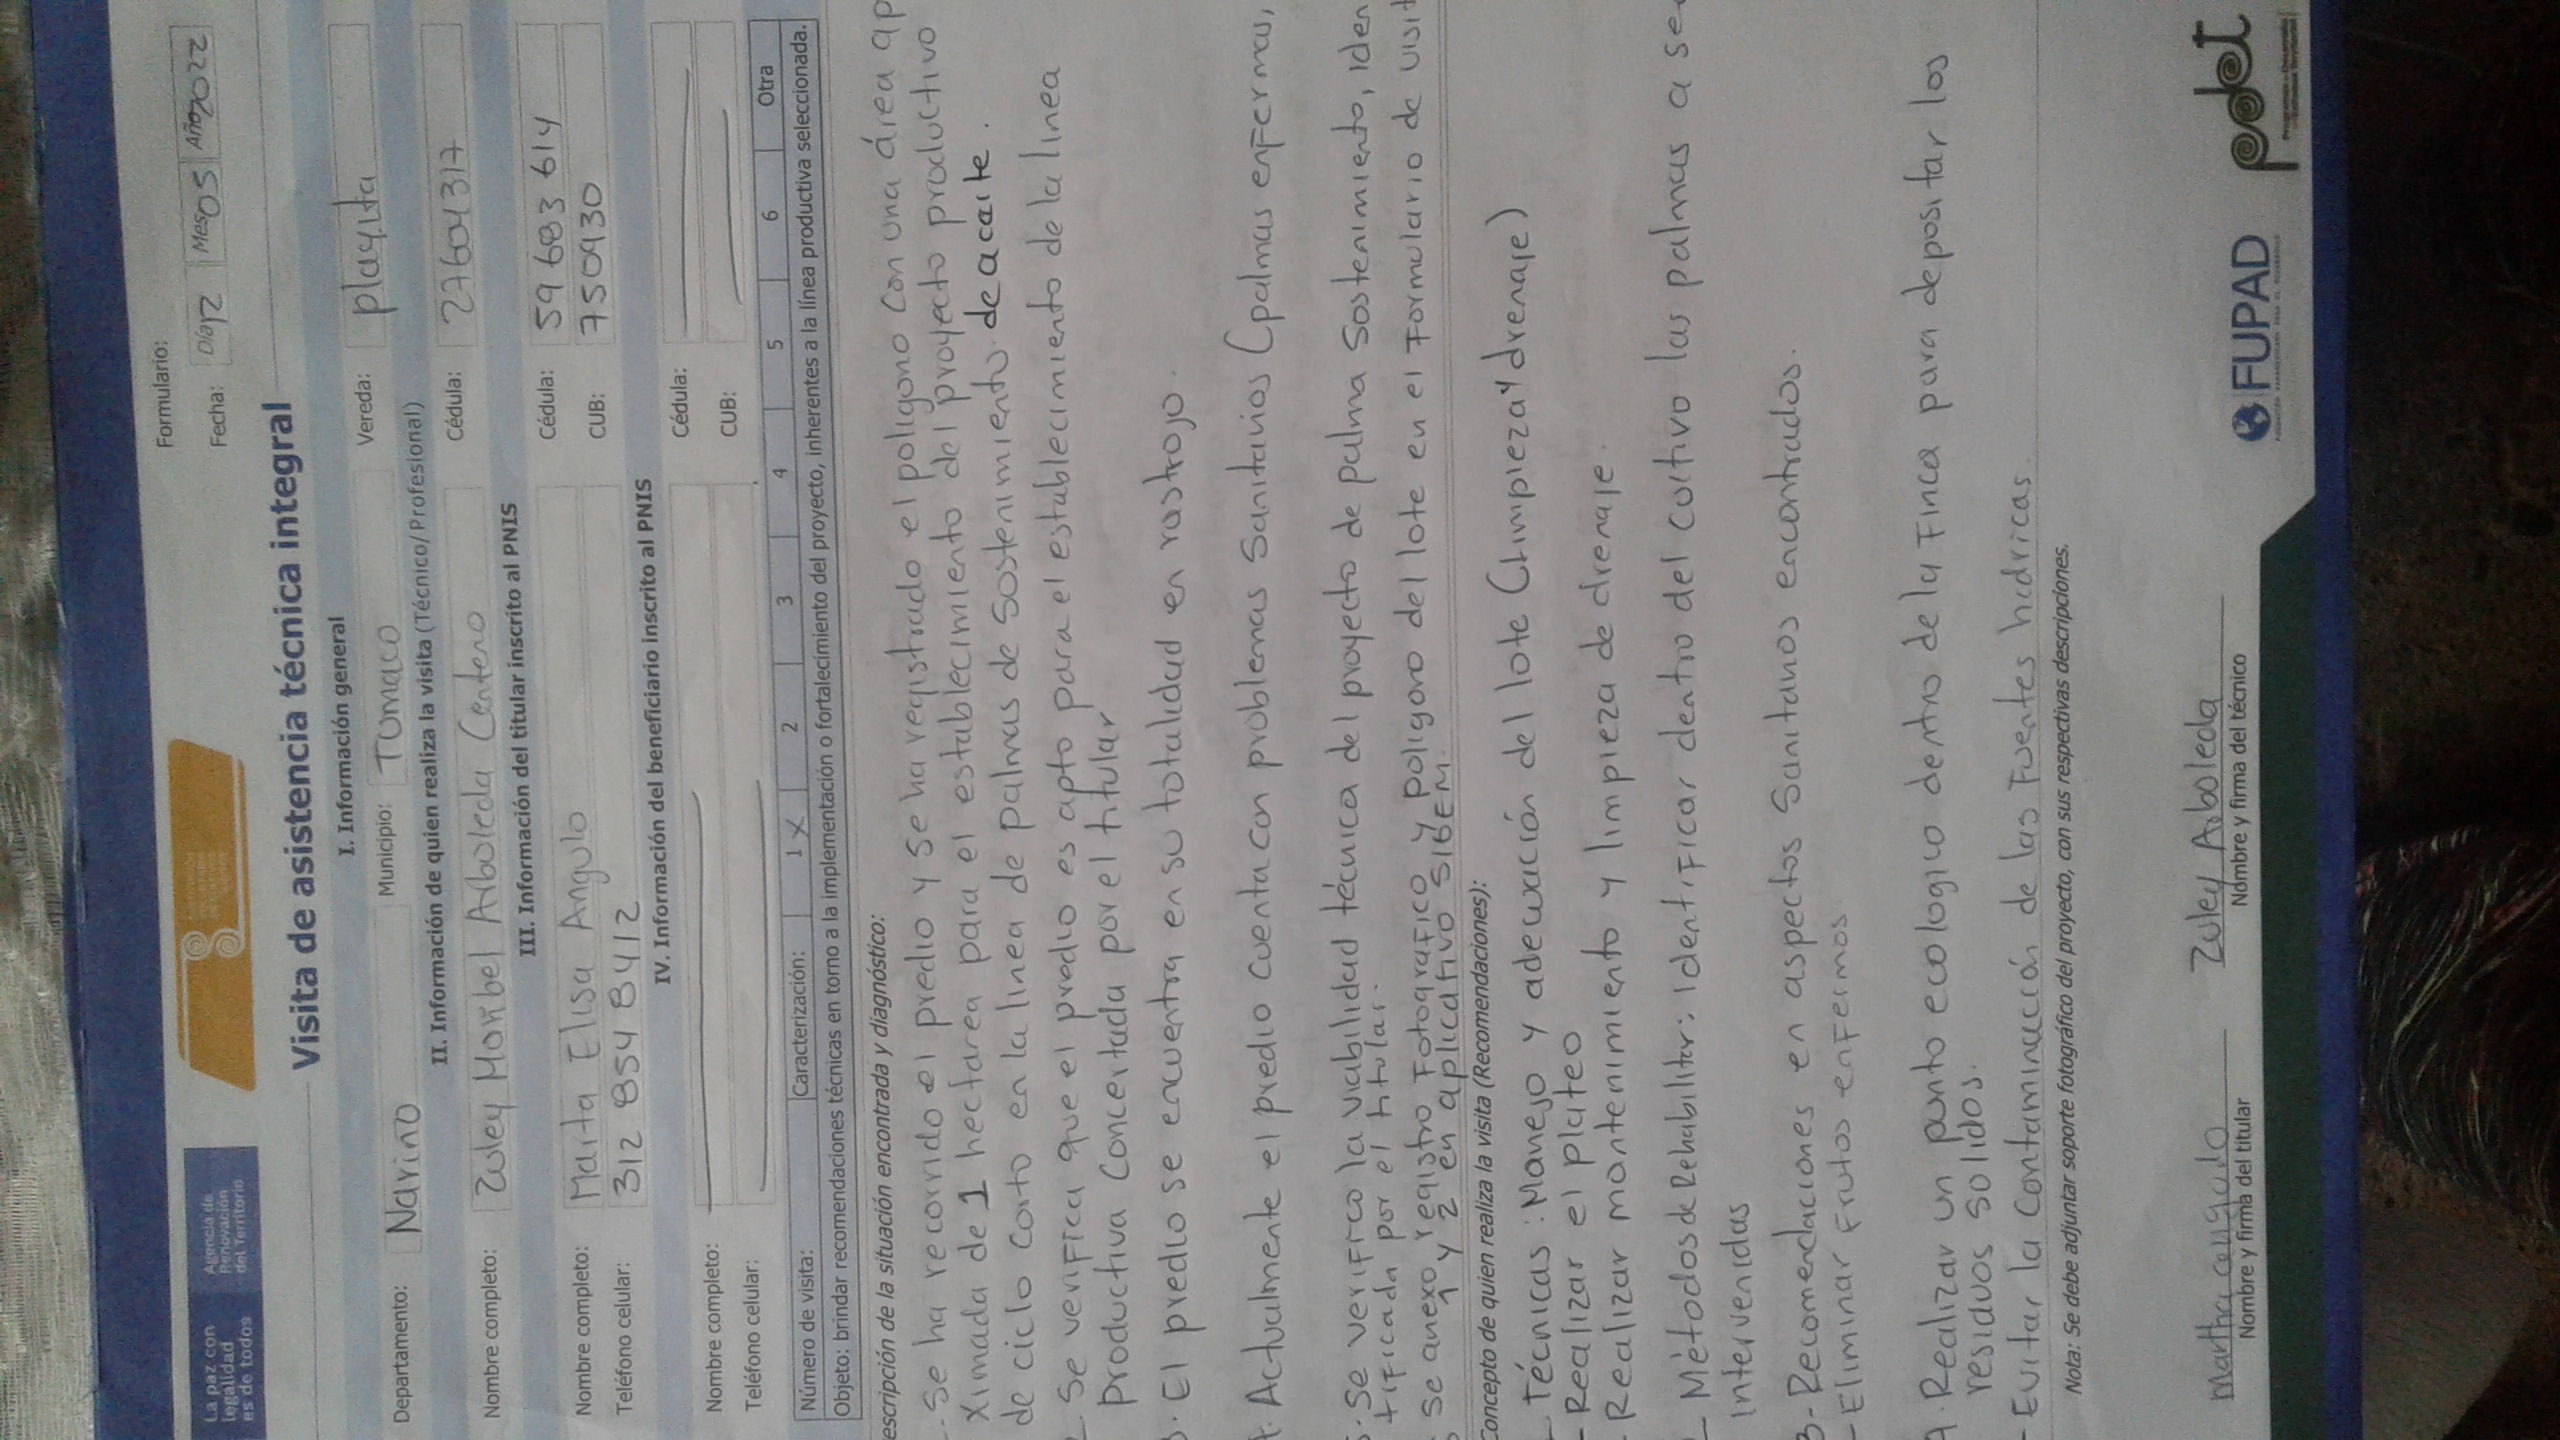 La paz con
legalidad
es de todos
Agencia de
Renovación
del Territorio
Formulario:
Fecha: Día 12 Mes 05 Año 2022
Visita de asistencia técnica integral
I. Información general
Departamento: Nariño Municipio: Tumaco Vereda: playita
II. Información de quien realiza la visita (Técnico/ Profesional)
Nombre completo: Zuley Maribel Arboleda Centeno Cédula: 27604317
III. Información del titular inscrito al PNIS
Nombre completo: Marta Elisa Angulo Cédula: 59 683 614
Teléfono celular: 312 854 8412 CUB: 750930
IV. Información del beneficiario inscrito al PNIS
Nombre completo: Cédula:
Teléfono celular: CUB:
Número de visita: Caracterización: 1 X 2 3 4 5 6 Otra
Objeto: brindar recomendaciones técnicas en torno a la implementación o fortalecimiento del proyecto, inherentes a la línea productiva seleccionada.
escripción de la situación encontrada y diagnóstico:
- Se ha recorrido el predio y se ha registrado el poligono con una área ap
ximada de 1 hectarea para el establecimiento del proyecto productivo
de ciclo corto en la linea de palmas de sostenimiento. de acaite.
- Se verifica que el predio es apto para el establecimiento de la linea
productiva concertada por el titular
. El predio se encuentra en su totalidad en rastrojo.
. Actualmente el predio cuenta con problemas Sanitarios (palmas enfermas,
. Se verifico la viabilidad técnica del proyecto de palma sostenimiento, iden
tificada por el titular.
Se anexo registro Fotografico y poligono del lote en el Formulario de visit
1 y 2 en aplicativo SIGEM.
Concepto de quien realiza la visita (Recomendaciones):
- Técnicas: Manejo y adecuación del lote (Limpieza y drenaje)
- Realizar el plateo
. Realizar mantenimiento y limpieza de drenaje.
- Métodos de Rehabilitar: identificar dentro del cultivo las palmas a se
intervenidas
3- Recomendaciones en aspectos Sanitarios encontrados.
- Eliminar Frutos enfermos
4. Realizar un punto ecologico dentro de la Finca para depositar los
residuos solidos.
- Evitar la Contaminación de las Fuentes hidricas.
Nota: Se debe adjuntar soporte fotográfico del proyecto, con sus respectivas descripciones.
Zuley Arboleda
Nombre y firma del titular
Nombre y firma del técnico
FUPAD
pdet